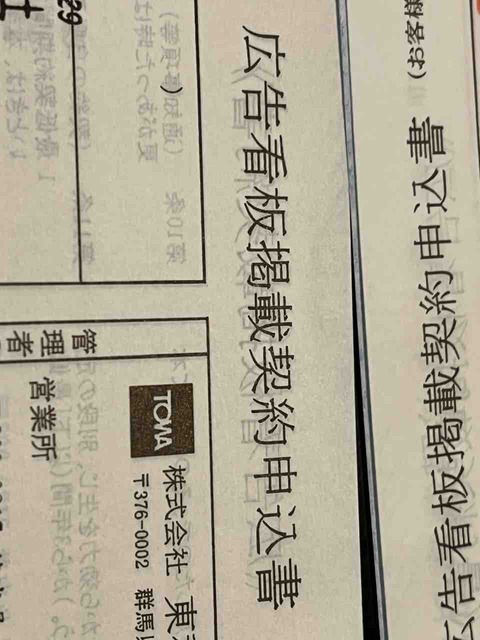 広告看板掲載契約申込書
告看板掲載契約申込書 (お客様
管理者
TOWA
株式会社 東
〒376-0002 群馬
営業所
29